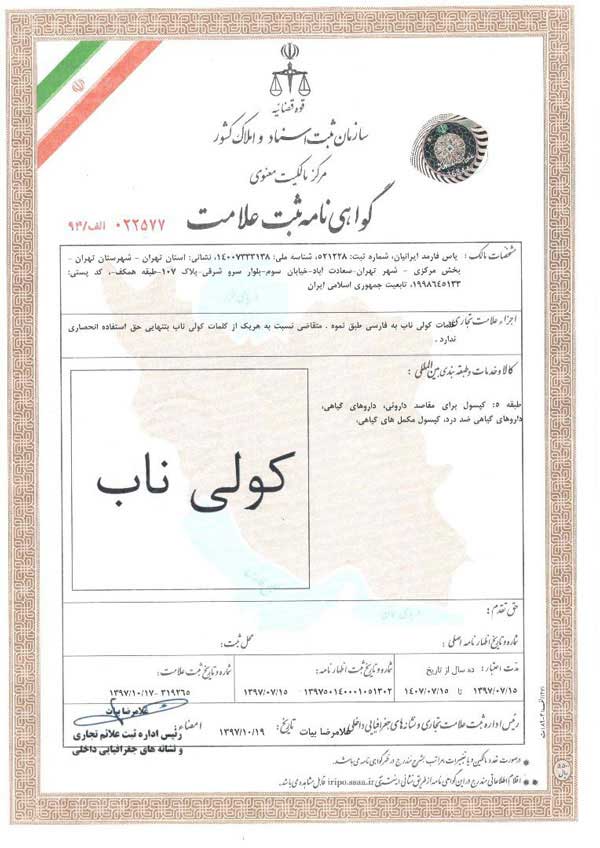 قوه قضائیه
سازمان ثبت اسناد و املاک کشور
مرکز مالکیت معنوی
گواهی نامه ثبت علامت
۰۲۲۵۷۷ الف/۹۳
مشخصات مالک: یاس فارمد ایرانیان، شماره ثبت: ۵۲۱۲۲۸، شناسه ملی: ۱۴۰۰۷۳۳۳۱۳۸، نشانی: استان تهران - شهرستان تهران -
بخش مرکزی - شهر تهران-سعادت اباد-خیابان سوم-بلوار سرو شرقی-پلاک ۱۰۷-طبقه همکف-، کد پستی:
۱۹۹۸۶۴۵۱۳۳، تابعیت جمهوری اسلامی ایران
اجزاء علامت تجاری: کلمات کولی ناب به فارسی طبق نموه . متقاضی نسبت به هریک از کلمات کولی ناب بتنهایی حق استفاده انحصاری
ندارد .
کالا و خدمات و طبقه بندی بین المللی :
طبقه ۵: کپسول برای مقاصد داروئی، داروهای گیاهی،
داروهای گیاهی ضد درد، کپسول مکمل های گیاهی،
کولی ناب
حق تقدم:
شماره و تاریخ اظهار نامه اصلی :
محل ثبت:
مدت اعتبار: ده سال از تاریخ
۱۳۹۷/۰۷/۱۵ تا ۱۴۰۷/۰۷/۱۵
شماره و تاریخ ثبت اظهار نامه:
۱۳۹۷۵۰۱۴۰۰۰۱۰۵۱۳۰۲ - ۱۳۹۷/۰۷/۱۵
شماره و تاریخ ثبت علامت:
۳۱۹۲۶۵ - ۱۳۹۷/۱۰/۱۷
رئیس اداره ثبت علامت تجاری و نشانه های جغرافیایی داخلی: غلامرضا بیات
تاریخ: ۱۳۹۷/۱۰/۱۹
امضاء:
غلامرضا بیات
رئیس اداره ثبت علائم تجاری
و نشانه های جغرافیایی داخلی
درصورت تعدد مالکین و یا تغییرات مراتب بشرح مندرج در ظهر گواهی نامه می باشد.
اقلام اطلاعاتی مندرج در این گواهی نامه از طریق نشانی اینترنتی iripo.ssaa.ir قابل مشاهده می باشد.